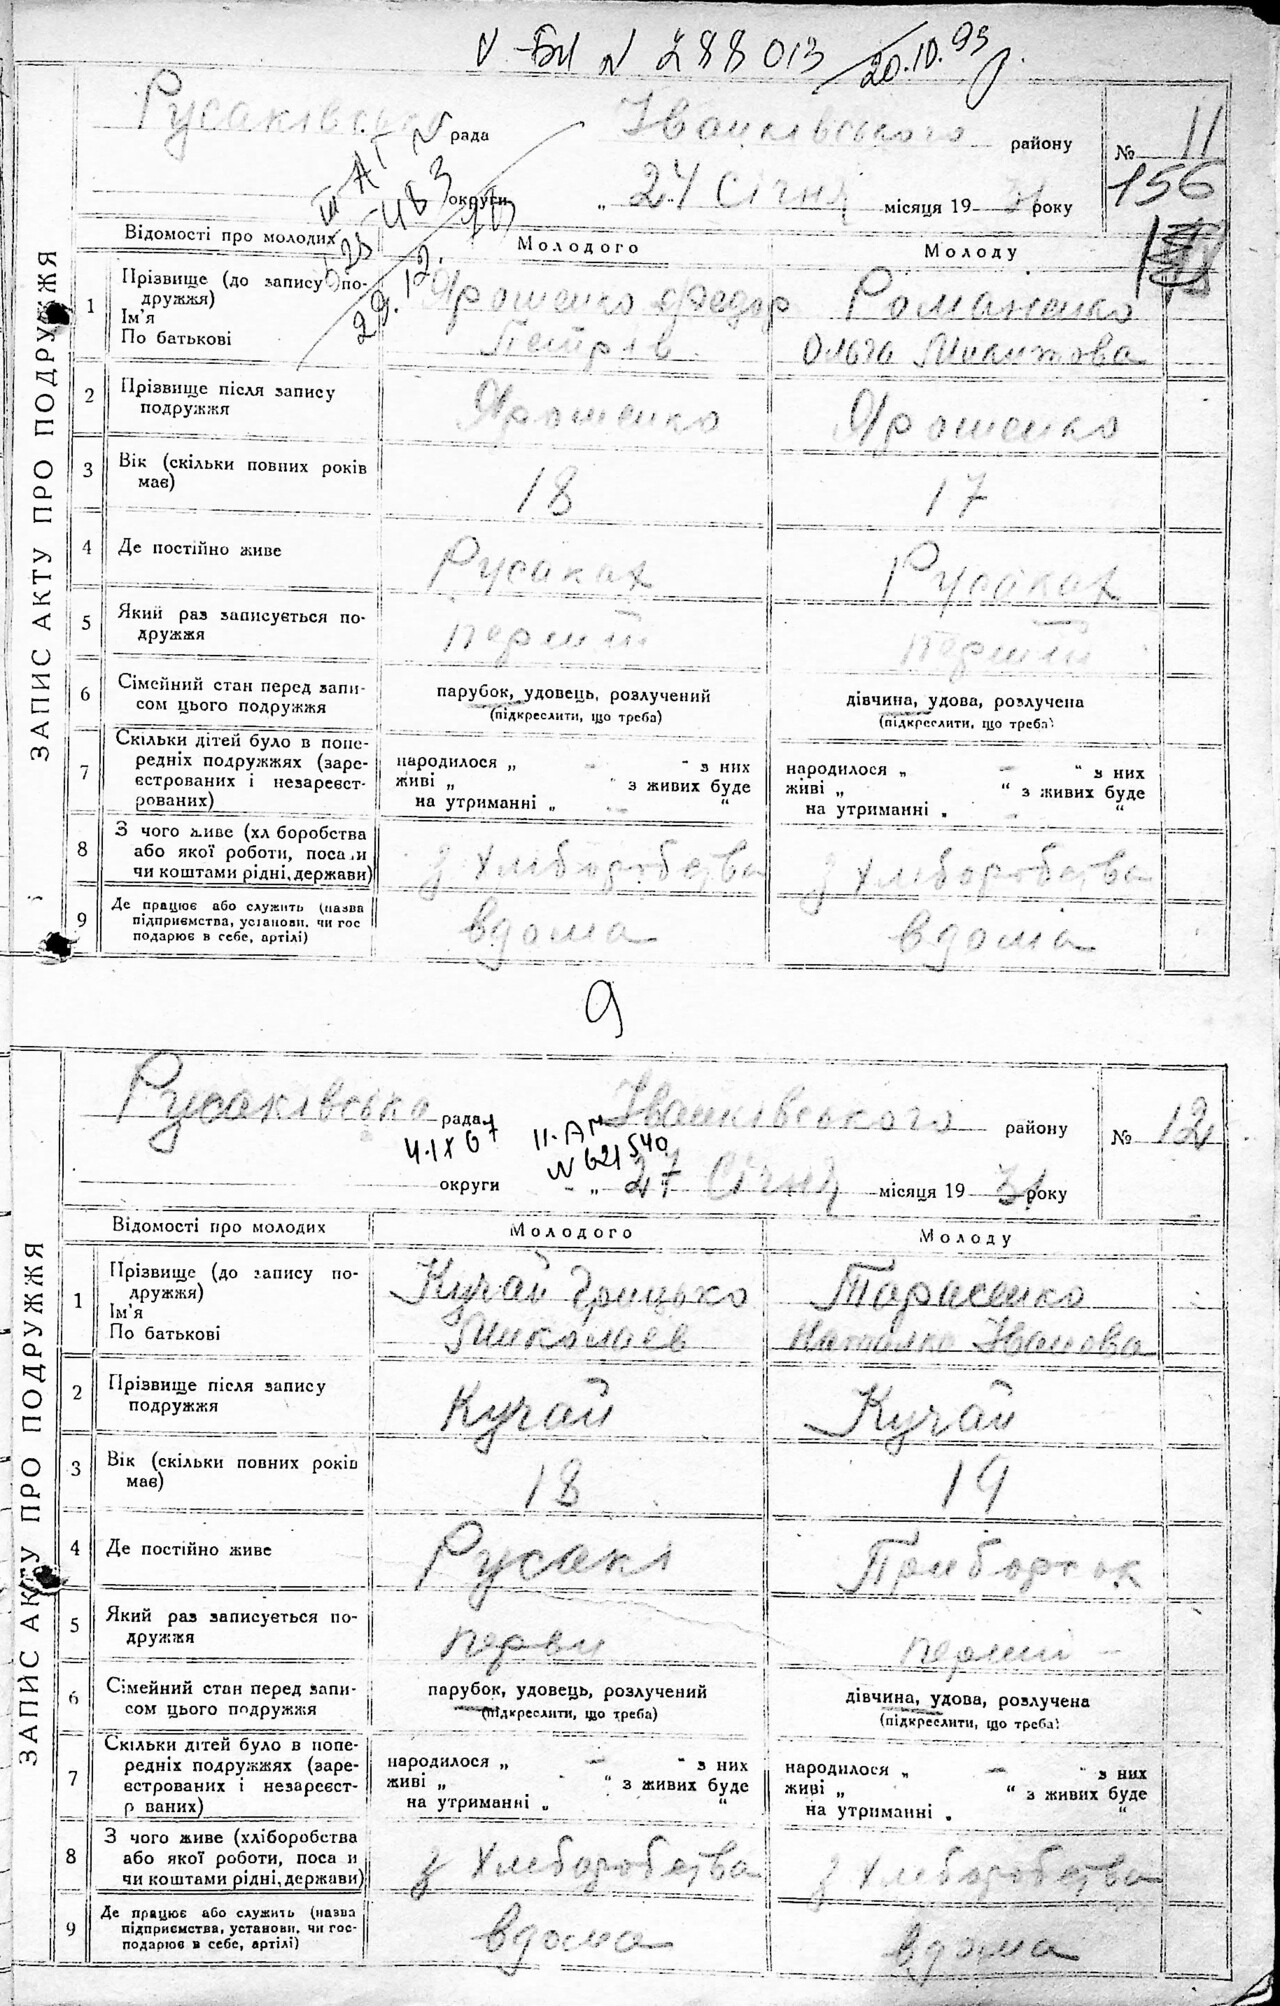 V-БИ N 288013 20.10.93
Русаківська рада Іванківського району № 11
156
округи „ 24 Січня місяця 19 31 року
ІІІ АГ N
483
29.12.
ЗАПИС АКТУ ПРО ПОДРУЖЖЯ
Відомості про молодих Молодого Молоду
1 Прізвище (до запису по-
дружжя)
Ім'я
По батькові
Ярошенко Федор
Петрів
Романенко
Ольга Микитова
2 Прізвище після запису
подружжя
Ярошенко Ярошенко
3 Вік (скільки повних років
має)
18 17
4 Де постійно живе Русаках Русаках
5 Який раз записується по-
дружжя
перший перший
6 Сімейний стан перед запи-
сом цього подружжя
парубок, удовець, розлучений
(підкреслити, що треба)
дівчина, удова, розлучена
(підкреслити, що треба)
7 Скільки дітей було в попе-
редніх подружжях (заре-
єстрованих і незареєст-
рованих)
народилося „ – " з них
живі „ " з живих буде
на утриманні „ – "
народилося „ – " з них
живі „ " з живих буде
на утриманні „ – "
8 З чого живе (хл боробства
або якої роботи, поса и
чи коштами рідні, держави)
з хліборобства з хліборобства
9 Де працює або служить (назва
підприємства, установи, чи гос
подарює в себе, артілі)
вдома вдома
9
Русаківська рада Іванківського району № 12
4.IX 67 II-АМ
N 621540
округи „ 27 Січня місяця 19 31 року
ЗАПИС АКТУ ПРО ПОДРУЖЖЯ
Відомості про молодих Молодого Молоду
1 Прізвище (до запису по-
дружжя)
Ім'я
По батькові
Кучай Грицько
Миколаєв
Тарасенко
Наталка Іванова
2 Прізвище після запису
подружжя
Кучай Кучай
3 Вік (скільки повних років
має)
18 19
4 Де постійно живе Русакі Приборськ
5 Який раз записується по-
дружжя
перви перший
6 Сімейний стан перед запи-
сом цього подружжя
парубок, удовець, розлучений
(підкреслити, що треба)
дівчина, удова, розлучена
(підкреслити, що треба)
7 Скільки дітей було в попе-
редніх подружжях (заре-
єстрованих і незареєст-
р ваних)
народилося „ – " з них
живі „ " з живих буде
на утриманні „ "
народилося „ – " з них
живі „ " з живих буде
на утриманні „ "
8 З чого живе (хліборобства
або якої роботи, поса и
чи коштами рідні, держави)
з хліборобства з хліборобства
9 Де працює або служить (назва
підприємства, установи, чи гос-
подарює в себе, артілі)
вдома вдома